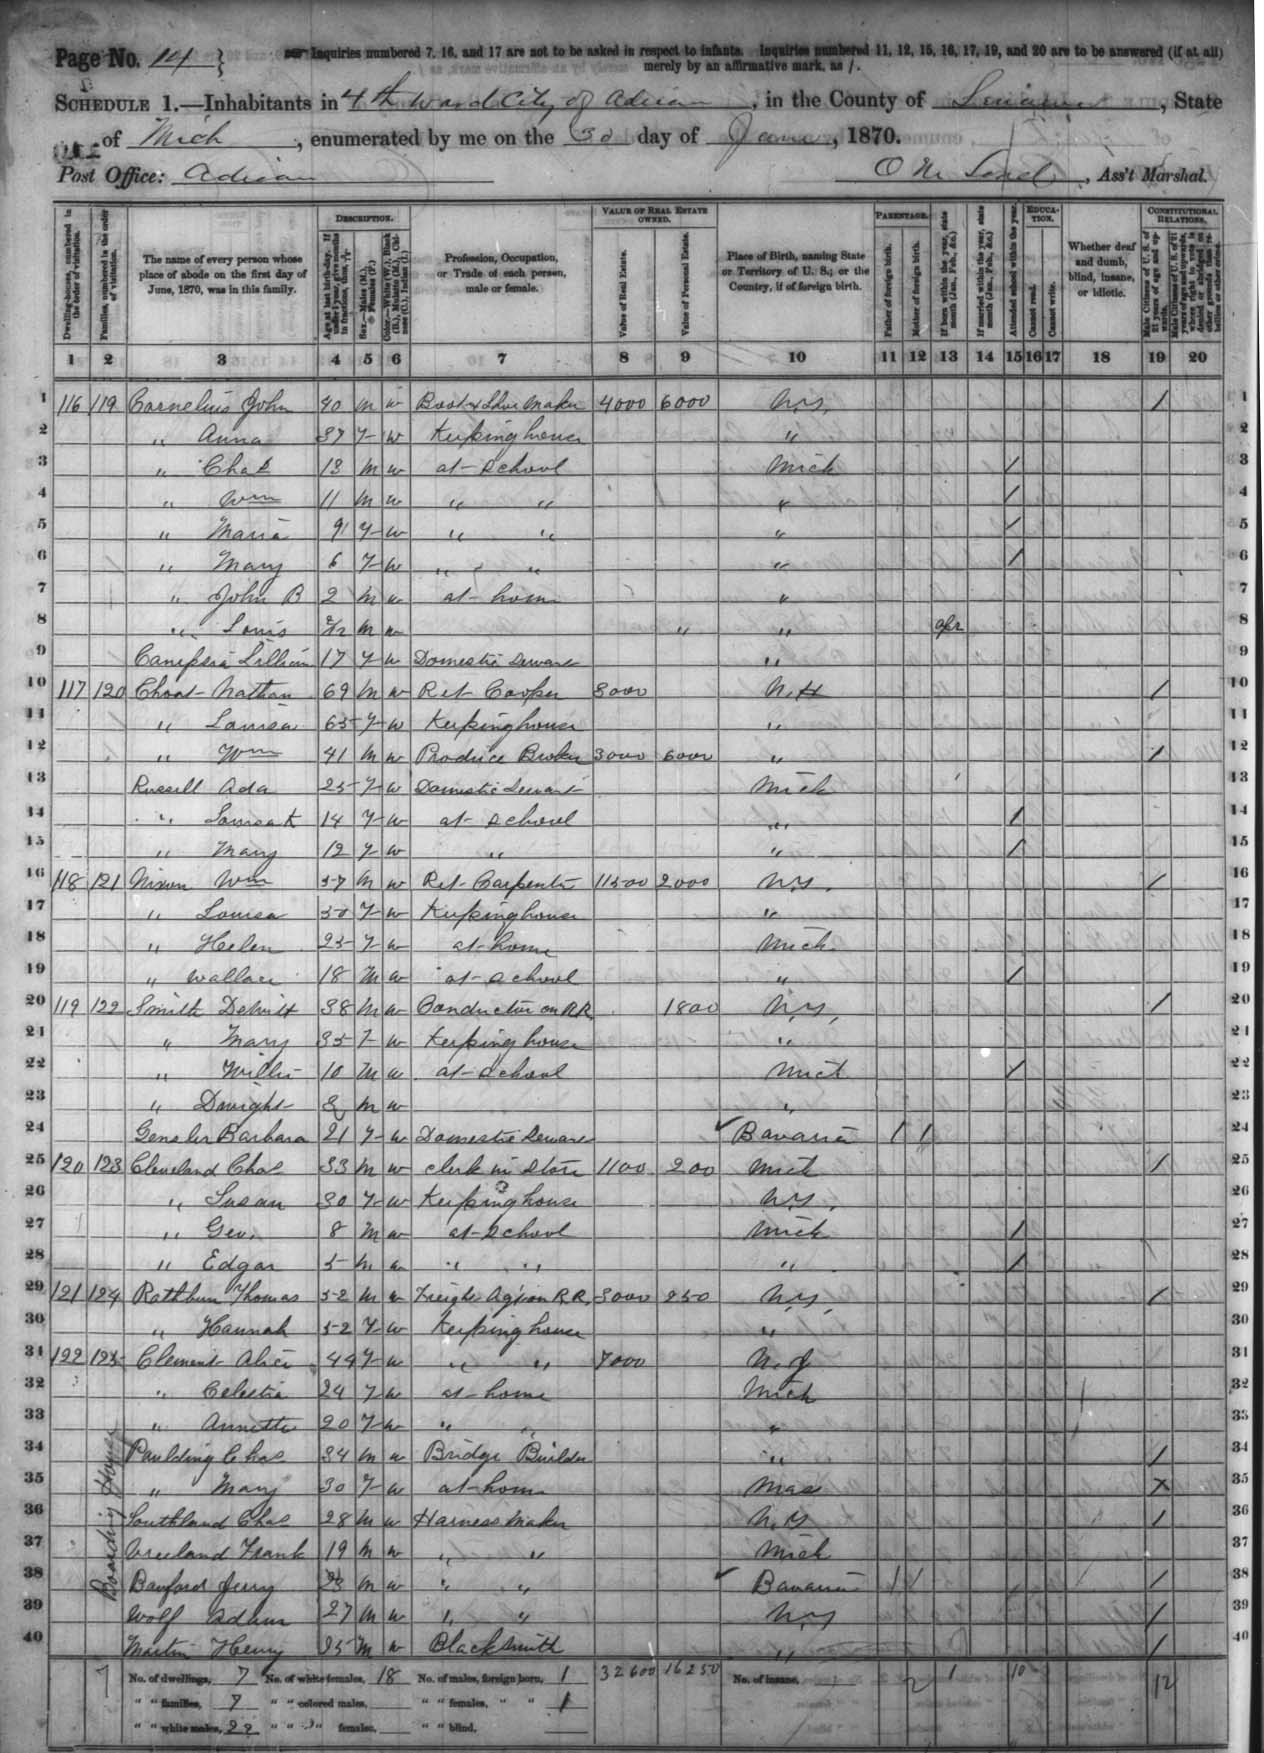 Page No. 14
Inquiries numbered 7, 16, and 17 are not to be asked in respect to infants. Inquiries numbered 11, 12, 15, 16, 17, 19, and 20 are to be answered (if at all)
merely by an affirmative mark, as /.
SCHEDULE 1.—Inhabitants in 4th Ward City of Adrian, in the County of Lenawee, State
of Mich, enumerated by me on the 30 day of June, 1870.
Post Office: Adrian Ass't Marshal.
DESCRIPTION. VALUE OF REAL ESTATE OWNED. PARENTAGE. EDUCATION. CONSTITUTIONAL RELATIONS.
Dwelling-houses, numbered in the order of visitation. Families, numbered in the order of visitation. The name of every person whose place of abode on the first day of June, 1870, was in this family. Profession, Occupation, or Trade of each person, male or female. Value of Real Estate. Value of Personal Estate. Place of Birth, naming State or Territory of U. S.; or the Country, if of foreign birth. Father of foreign birth. Mother of foreign birth. If born within the year, state month (Jan. Feb., &c.) If married within the year, state month (Jan. Feb., &c.) Attended school within the year. Cannot read. Cannot write. Whether deaf and dumb, blind, insane, or idiotic.
1 2 3 4 5 6 7 8 9 10 11 12 13 14 15 16 17 18 19 20
1 116 119 Cornelius John 40 M W Boot & Shoe Maker 4000 6000 N.Y. / 1
2 " Anna 37 F W Keeping house " 2
3 " Chas 13 M W at School Mich / 3
4 " Wm 11 M W " " " / 4
5 " Maria 9 F W " " " / 5
6 " Mary 6 F W " " " / 6
7 " John B 2 M W at home " 7
8 " Louis 2/12 M W " " Apr 8
9 Lillian 17 F W Domestic Servant " 9
10 117 120 Choat Nathan 69 M W Ret Cooper 3000 N.H / 10
11 " Louisa 65 F W Keeping house " 11
12 " Wm 41 M W Produce Broker 3000 6000 " / 12
13 Russell Ada 25 F W Domestic Servant Mich 13
14 " Louisa 14 F W at School " / 14
15 " Mary 12 F W " " / 15
16 118 121 Nixon Wm 57 M W Ret Carpenter 11500 2000 N.Y. / 16
17 " Louisa 50 F W Keeping house " 17
18 " Helen 25 F W at home Mich. 18
19 " Wallace 18 M W at School " / 19
20 119 122 Smith Dewitt 38 M W Conductor on R.R. 1800 N.Y. / 20
21 " Mary 35 F W Keeping house " 21
22 " Willis 10 M W at School Mich / 22
23 " Dwight M W " 23
24 Gensler Barbara 21 F W Domestic Servant Bavaria / / 24
25 120 123 Cleveland Chas 33 M W Clerk in Store 1100 200 Mich / 25
26 " Susan 30 F W Keeping house N.Y. 26
27 " Geo. 8 M W at School Mich / 27
28 " Edgar 5 M W " " " / 28
29 121 124 Rathbun Thomas 52 M W Freight Agt on R.R. 3000 250 N.Y. / 29
30 " Hannah 52 F W Keeping house " 30
31 122 125 Clement Alice 49 F W " " 7000 N.J 31
32 " Celestia 24 F W at home Mich 32
33 " Annette 20 F W " " " 33
Boarding House
34 Paulding Chas 34 M W Bridge Builder " / 34
35 " Mary 30 F W at home Mass X 35
36 Southland Chas 28 M W Harness Maker N.Y / 36
37 Vreeland Frank 19 M W " " Mich 37
38 Banford Jerry M W " " Bavaria / / / 38
39 Wolf Adam 27 M W " " N.Y / 39
40 Martin Henry 25 M W Blacksmith " / 40
No. of dwellings, 7 No. of white females, 18 No. of males, foreign born, 1 32600 16250 No. of insane, 2 1 10 12
" " families, 7 " " colored males, " " females, " " 1
" " white males, 22 " " " females, " " blind,